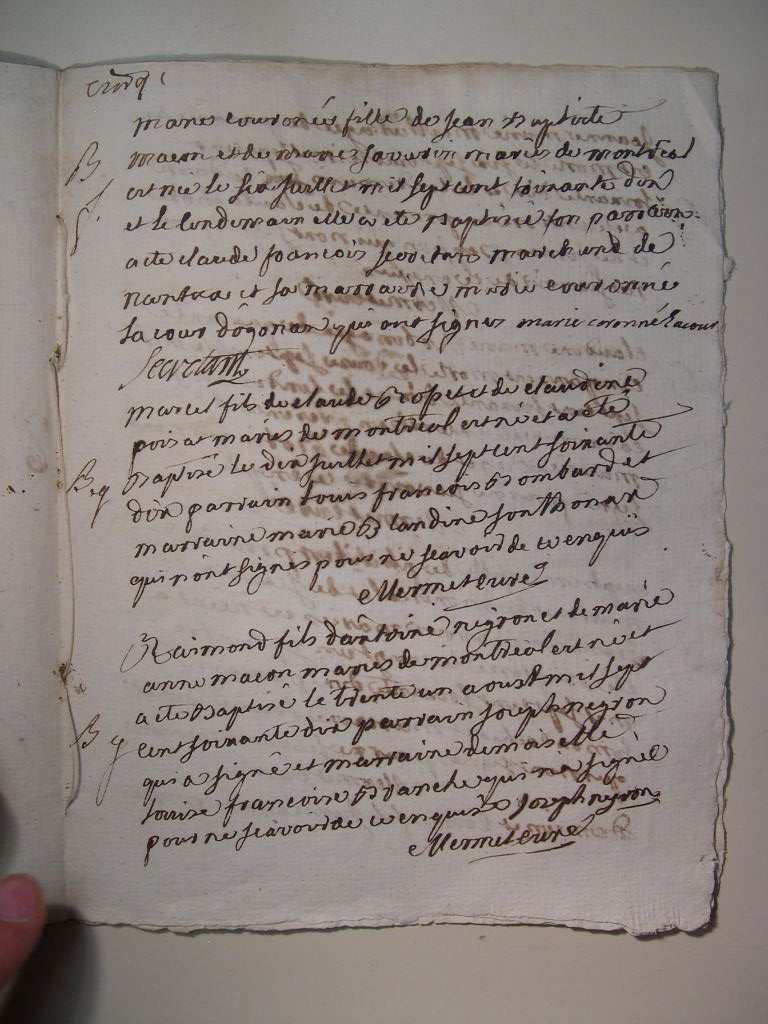 Cinq
marie couronée fille de Jean Baptiste
B macon et de marie savarin mariés de montréal
est née le six juillet mil sept cent soixante dix
et le lendemain elle a eté Baptisée son parrain
a eté claude francois secretan marchand de
nantua et sa marraine marie couronné
lacour d'ogonax qui ont signes marie coronné lacour
Secretant
marcel fils de claude et de claudine
poisat mariés de montréal est né et a eté
B g Baptisé le dix juillet mil sept cent soixante
dix parrain louis francois Bombard et
marraine marie Blandine sonthonax
qui n'ont signes pour ne scavoir de ce enquis
Mermet curé
Raimond fils d'antoine negron et de marie
anne macon mariés de montréal est né et
a eté Baptisé le trente un aoust mil sept
B g cent soixante dix parrain Joseph negron
qui a signé et marraine demoiselle
louise francoise Branche qui n'a signé
pour ne scavoir de ce enquise Joseph negron
Mermet curé